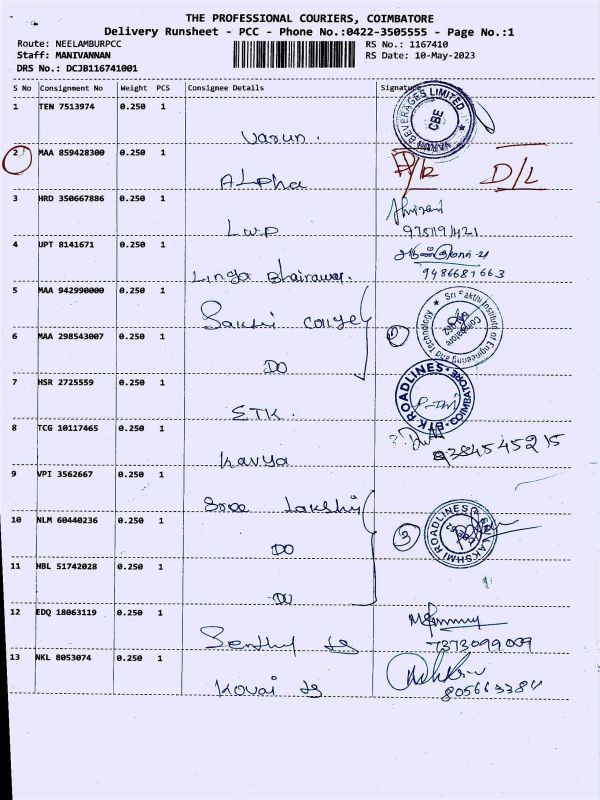 THE PROFESSIONAL COURIERS, COIMBATORE
Delivery Runsheet - PCC - Phone No.:0422-3505555 - Page No.:1
Route: NEELAMBURPCC RS No.: 1167410
Staff: MANIVANNAN RS Date: 10-May-2023
DRS No.: DCJB116741001
S No Consignment No Weight PCS Consignee Details Signature
1 TEN 7513974 0.250 1
Varun.
VARUN BEVERAGES LIMITED CBE
2 MAA 859428300 0.250 1
Alpha
D/L
3 HRD 350667886 0.250 1
4 UPT 8141671 0.250 1
Linga Bhairavar.
9486681663
5 MAA 942990000 0.250 1
Sakthi
Sri Sakthi Institute of Engineering and Technology Coimbatore
6 MAA 298543007 0.250 1
DO
7 HSR 2725559 0.250 1
BTK ROADLINES COIMBATORE
8 TCG 10117465 0.250 1
Kavya
9384545215
9 VPI 3562667 0.250 1
Sree Lakshmi
10 NLM 60440236 0.250 1
DO
SRI LAKSHMI ROADLINES
11 HBL 51742028 0.250 1
DO
12 EDQ 18063119 0.250 1
7373099009
13 NKL 8053074 0.250 1
Kovai